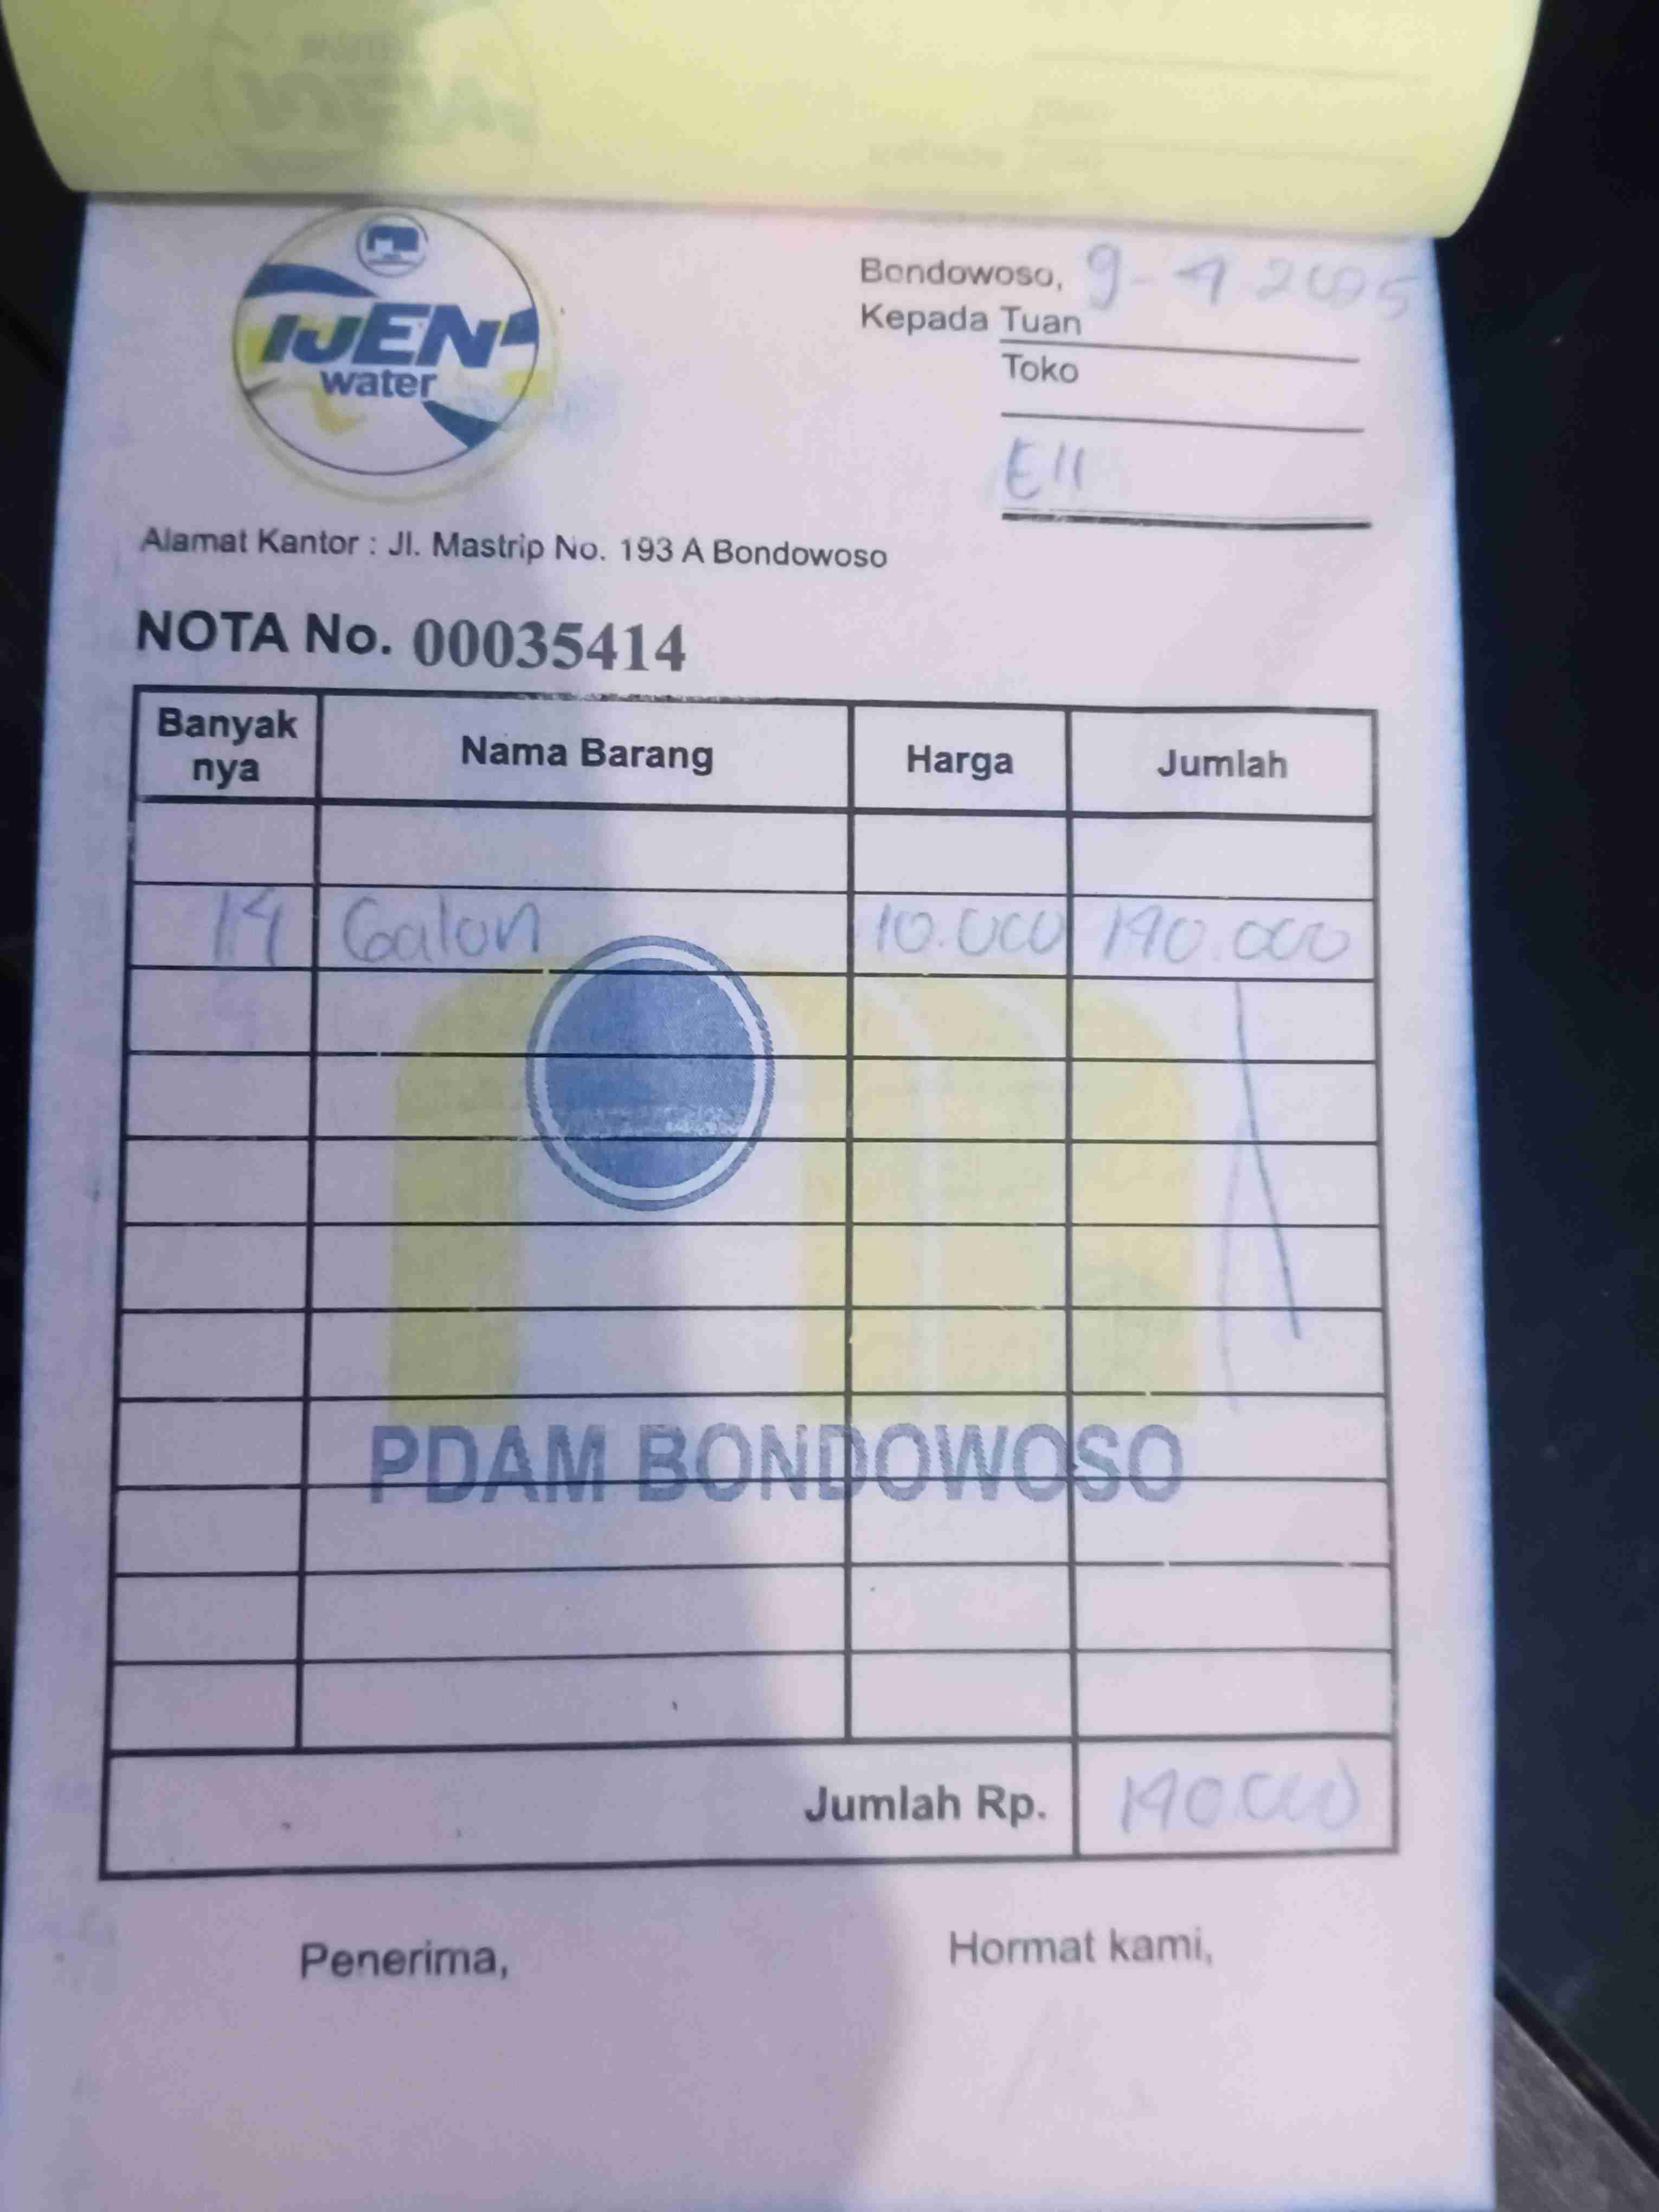 IJEN
water
Bondowoso, 9-4-2025
Kepada Tuan
Toko
Ell
Alamat Kantor : Jl. Mastrip No. 193 A Bondowoso
NOTA No. 00035414
Banyak nya Nama Barang Harga Jumlah
14 Galon 10.000 140.000
PDAM BONDOWOSO
Jumlah Rp. 140.000
Penerima, Hormat kami,